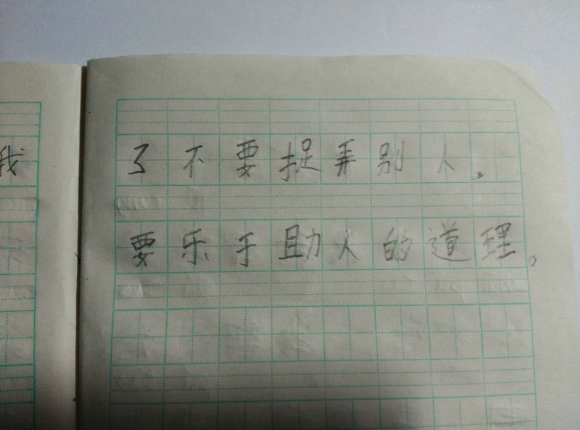 我
了不要捉弄别人，
要乐于助人的道理。